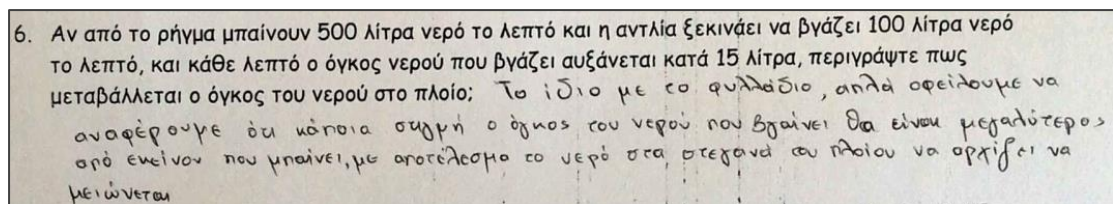 6. Αν από το ρήγμα μπαίνουν 500 λίτρα νερό το λεπτό και η αντλία ξεκινάει να βγάζει 100 λίτρα νερό
το λεπτό, και κάθε λεπτό ο όγκος νερού που βγάζει αυξάνεται κατά 15 λίτρα, περιγράψτε πως
μεταβάλλεται ο όγκος του νερού στο πλοίο; Το ίδιο με το φυλλάδιο, απλά οφείλουμε να
αναφέρουμε ότι κάποια στιγμή ο όγκος του νερού που βγαίνει θα είναι μεγαλύτερος
από εκείνον που μπαίνει, με αποτέλεσμα το νερό στα στεγανά του πλοίου να αρχίζει να
μειώνεται